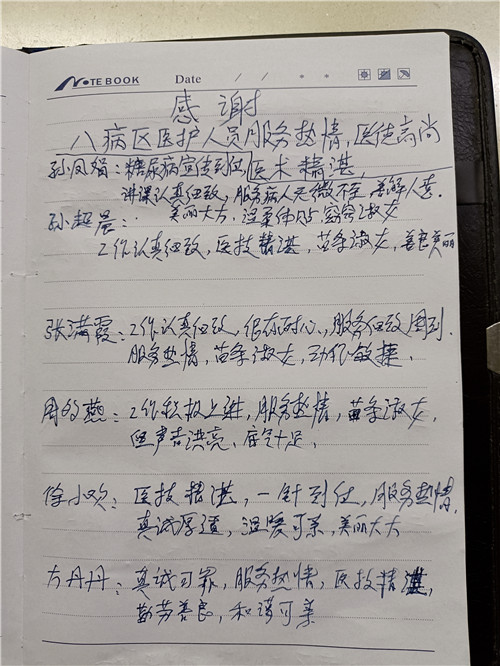 NOTE BOOK Date / /
感谢
八病区医护人员服务热情,医德高尚
孙凤娟:糖尿病宣传到位 医术精湛,
讲课认真细致,服务病人无微不至 善解人意.
孙超晨: 美丽大方,温柔体贴 窈窕淑女
工作认真细致,医技精湛,苗条淑女,善良美丽
张满霞:工作认真细致,很有耐心,服务细致周到.
服务热情,苗条淑女,动作敏捷.
周 燕:工作积极上进,服务热情,苗条淑女,
但声音洪亮、底气十足.
徐小欢:医技精湛,一针到位,服务热情,
真诚厚道,温暖可亲,美丽大方
方丹丹:真诚可靠,服务热情,医技精湛,
勤劳善良,和蔼可亲